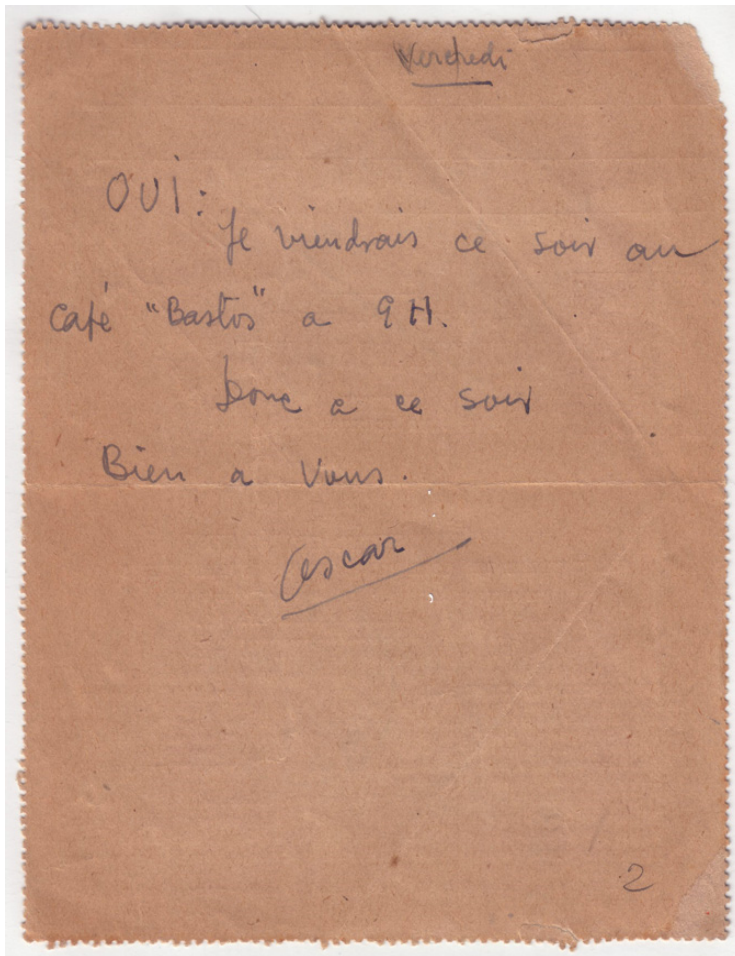 Vendredi
OUI:
Je viendrais ce soir au
café "Bastos" a 9H.
Donc a ce soir
Bien a Vous.
Oscar
2